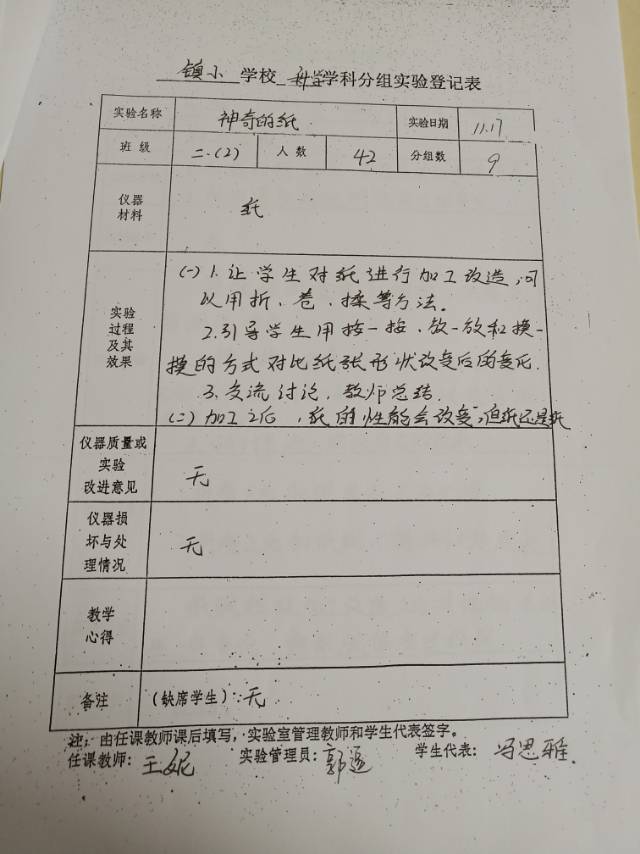 镇小 学校 科学 学科分组实验登记表
实验名称 神奇的纸 实验日期 11.17
班 级 二.(2) 人 数 42 分组数 9
仪器
材料
纸
实验
过程
及其
效果
(一) 1.让学生对纸进行加工改造,可
以用折、卷、揉等方法。
2.引导学生用按一按、放一放和摸一
摸的方式对比纸张形状改变后的变化.
3.交流讨论,教师总结.
(二)加工之后,纸的性能会改变,但纸还是纸
仪器质量或
实验
改进意见
无
仪器损
坏与处
理情况
无
教学
心得
备注 (缺席学生):无
注:由任课教师课后填写,实验室管理教师和学生代表签字。
任课教师:王妮 实验管理员:郭遥 学生代表:冯思雅.